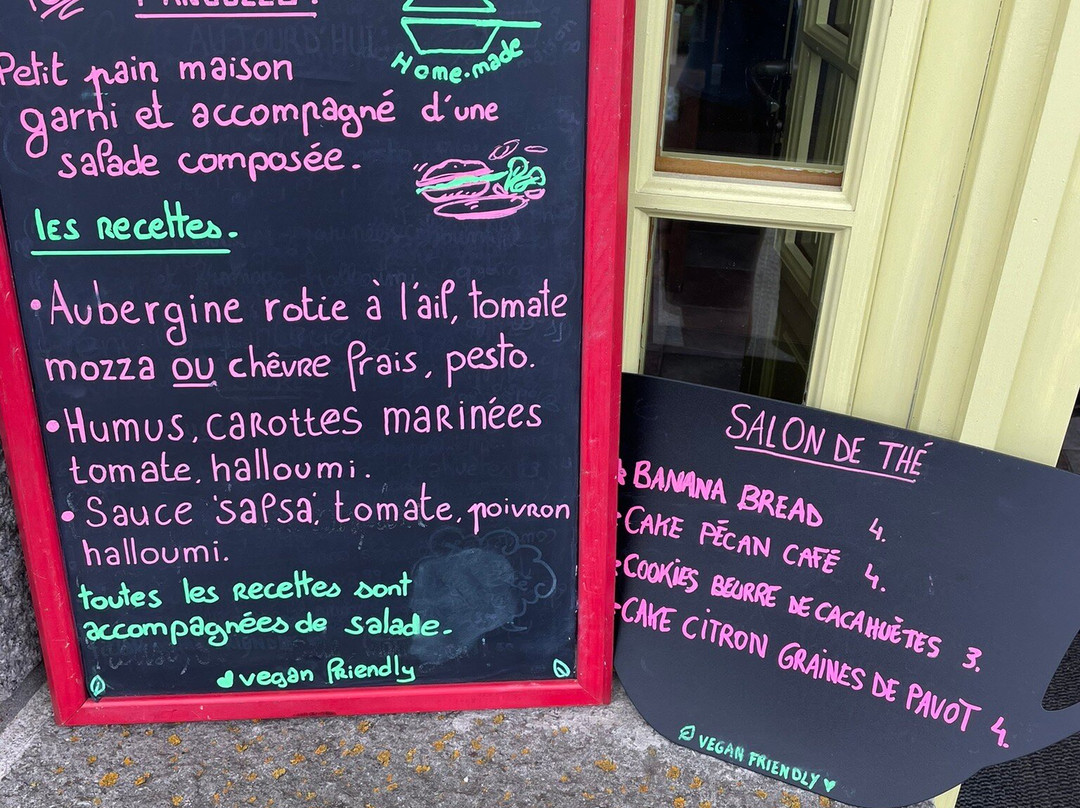 Home-made
Petit pain maison
garni et accompagné d'une
salade composée.
les recettes.
• Aubergine rotie à l'ail, tomate
mozza ou chèvre frais, pesto.
• Humus, carottes marinées
tomate, halloumi.
• Sauce 'salsa', tomate, poivron
halloumi.
toutes les recettes sont
accompagnées de salade.
vegan friendly
SALON DE THÉ
BANANA BREAD 4.
CAKE PÉCAN CAFÉ 4.
COOKIES BEURRE DE CACAHUÈTES 3.
CAKE CITRON GRAINES DE PAVOT 4.
VEGAN FRIENDLY